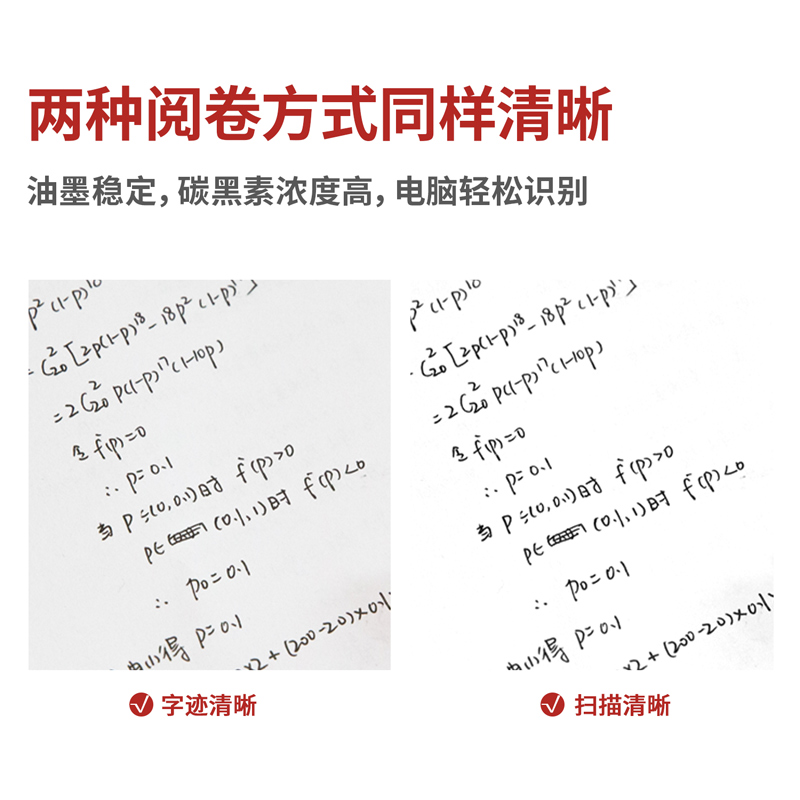 两种阅卷方式同样清晰
油墨稳定，碳黑素浓度高，电脑轻松识别
p² (1-p)¹⁸
= C₂₀² [2p(1-p)¹⁸ - 18p² (1-p)¹⁷]
= 2 C₂₀² p(1-p)¹⁷ (1-10p)
令 f'(p)=0
∴ p=0.1
当 p=(0,0.1)时 f'(p)>0
p∈ (0.1,1)时 f'(p)<0
∴ p₀=0.1
由(1)得 p=0.1
×2+(200-20)×0.1
p² (1-p)¹⁸
C₂₀² [2p(1-p)¹⁸ - 18p² (1-p)¹⁷]
= 2 C₂₀² p(1-p)¹⁷ (1-10p)
令 f'(p)=0
∴ p=0.1
当 p=(0,0.1)时 f'(p)>0
p∈ (0.1,1)时 f'(p)<0
∴ p₀=0.1
由(1)得 p=0.1
×2+(200-20)×0.1
字迹清晰
扫描清晰